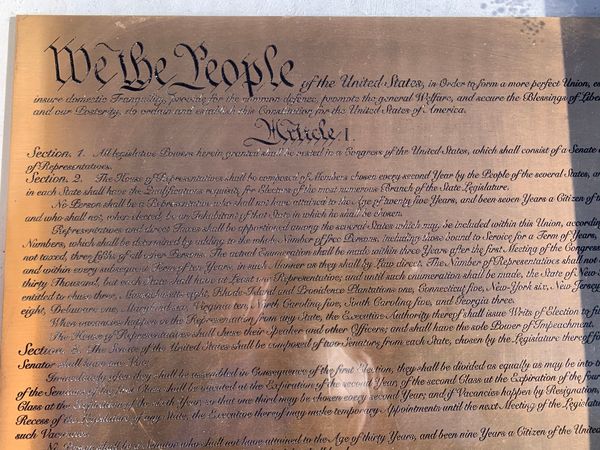 We the People of the United States, in Order to form a more perfect Union,
insure domestic Tranquility, provide for the common defence, promote the general Welfare, and secure the Blessings of
and our Posterity, do ordain and establish this Constitution for the United States of America.
Article I.
Section. 1. All legislative Powers herein granted shall be vested in a Congress of the United States, which shall consist of a Senate
of Representatives.
Section. 2. The House of Representatives shall be composed of Members chosen every second Year by the People of the several States,
in each State shall have the Qualifications requisite for Electors of the most numerous Branch of the State Legislature.
No Person shall be a Representative who shall not have attained to the Age of twenty five Years, and been seven Years a Citizen of
and who shall not, when elected, be an Inhabitant of that State in which he shall be chosen.
Representatives and direct Taxes shall be apportioned among the several States which may be included within this Union, according
Numbers, which shall be determined by adding to the whole Number of free Persons, including those bound to Service for a Term of Years,
not taxed, three fifths of all other Persons. The actual Enumeration shall be made within three Years after the first Meeting of the Congress
and within every subsequent Term of ten Years, in such Manner as they shall by Law direct. The Number of Representatives shall not
thirty Thousand, but each State shall have at Least one Representative; and until such enumeration shall be made, the State of New
entitled to chuse three, Massachusetts eight, Rhode Island and Providence Plantations one, Connecticut five, New York six, New Jersey
eight, Delaware one, Maryland six, Virginia ten, North Carolina five, South Carolina five, and Georgia three.
When vacancies happen in the Representation from any State, the Executive Authority thereof shall issue Writs of Election to
The House of Representatives shall chuse their Speaker and other Officers; and shall have the sole Power of Impeachment.
Section. 3. The Senate of the United States shall be composed of two Senators from each State, chosen by the Legislature thereof
Senator shall have one Vote.
Immediately after they shall be assembled in Consequence of the first Election, they shall be divided as equally as may be into
of the Senators of the first Class shall be vacated at the Expiration of the second Year, of the second Class at the Expiration of the
Class at the Expiration of the sixth Year, so that one third may be chosen every second Year; and if Vacancies happen by Resignation,
Recess of the Legislature of any State, the Executive thereof may make temporary Appointments until the next Meeting of the
such Vacancies.
No Person shall be a Senator who shall not have attained to the Age of thirty Years, and been nine Years a Citizen of the